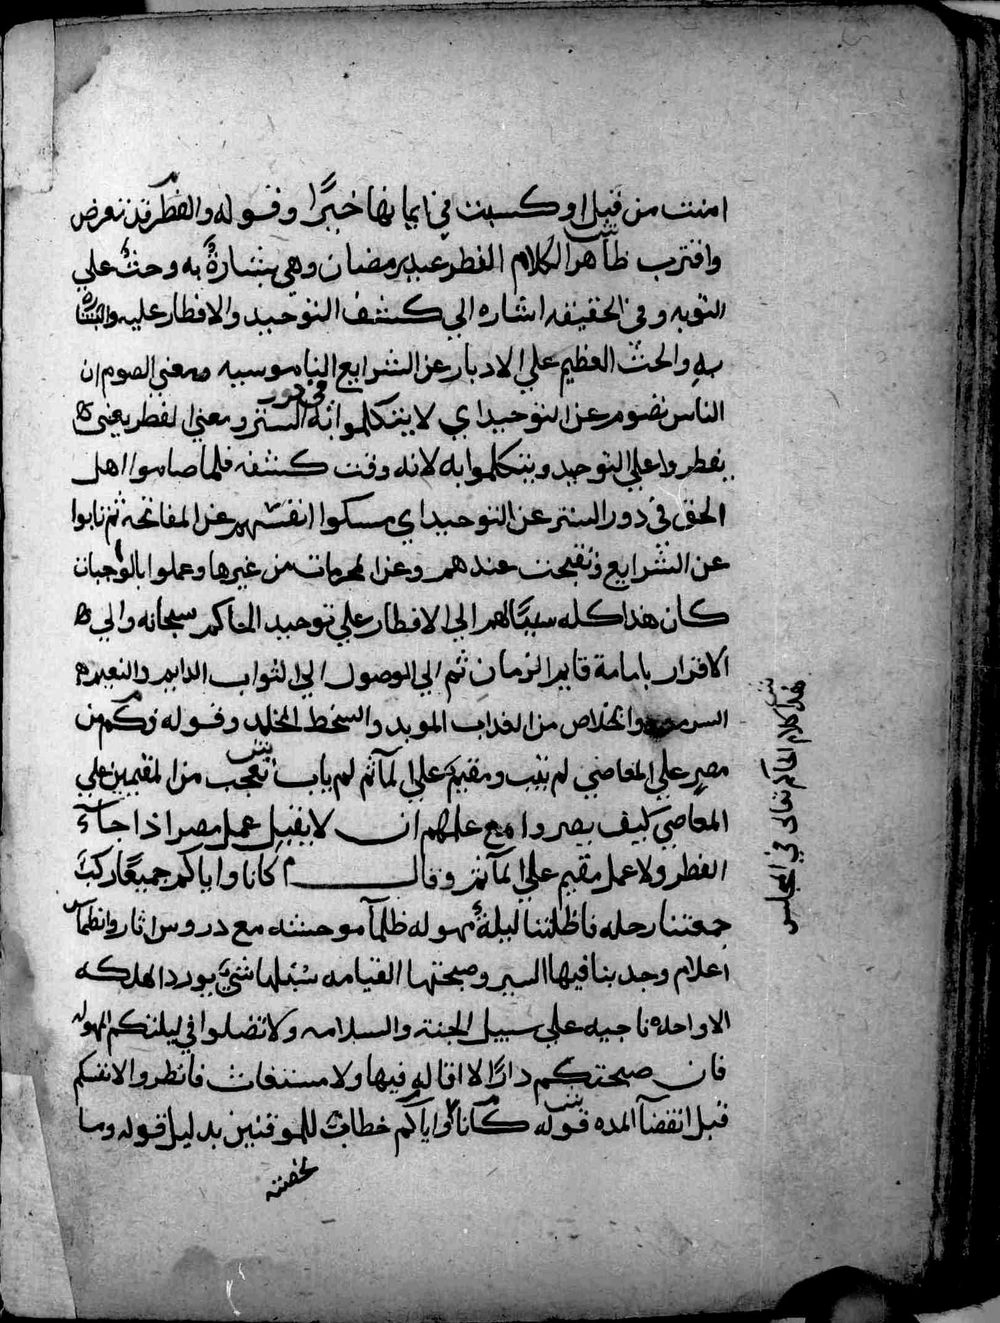 امنت من قبل او كسبت في ايمانها خيرًا وقوله والفطر قد تعرض
واقترب ظاهر الكلام الفطر عيد رمضان وهي بشارةٌ به وحث علي
التوبه وفي الحقيقه اشاره الي كشف التوحيد والافطار عليه والبشاره
به والحث العظيم علي الادبار عن الشرايع الناموسيه ومعني الصوم ان
الناس تصوم عن التوحيد اي لا يتكلموا به في دور الستر ومعني الفطر يعني
يفطروا علي التوحيد ويتكلموا به لانه وقت كشفه فلما صاموا اهل
الحق في دور الستر عن التوحيد اي مسكوا انفسهم عن المفاتحة ثم تابوا
عن الشرايع وتقبحت عندهم وعن المحرمات من غيرها وعملوا بالواجبات
كان هذا كله سببًا لهم الي الافطار علي توحيد الحاكم سبحانه والي
الاقرار بامامة قايم الزمان ثم الي الوصول الي الثواب الدايم والنعيم
السرمد والخلاص من العذاب الموبد والسخط المخلد وقوله وكم من
مصرٍ علي المعاصي لم يتب ومقيم علي المآثم لم ياب تعجب من المقيمين علي
المعاصي كيف يصروا مع علمهم ان لا يقبل عمل مصر اذا جآء
الفطر ولا عمل مقيم علي المآثم وقال م كانا واياكم جميعًا ركبٌ
جمعتنا رحله فاظلتنا ليلةٌ مهوله ظلمآ موحشه مع دروس اثار وانطماس
اعلام وجد بنا فيها السير وصبحتها القيامه شئلها شيٌ يورد الهلكه
الا واحده ناجيه علي سبيل الجنة والسلامه ولا تضلوا في ليلتكم المهوله
فان صبحتكم دارًا لا اقاله فيها ولا مستغاث فانظروا لانفسكم
قبل انقضآ المده قوله كانا واياكم خطاب للموقنين بدليل قوله وما
هذا كلام الحاكم تعالى في المجلس